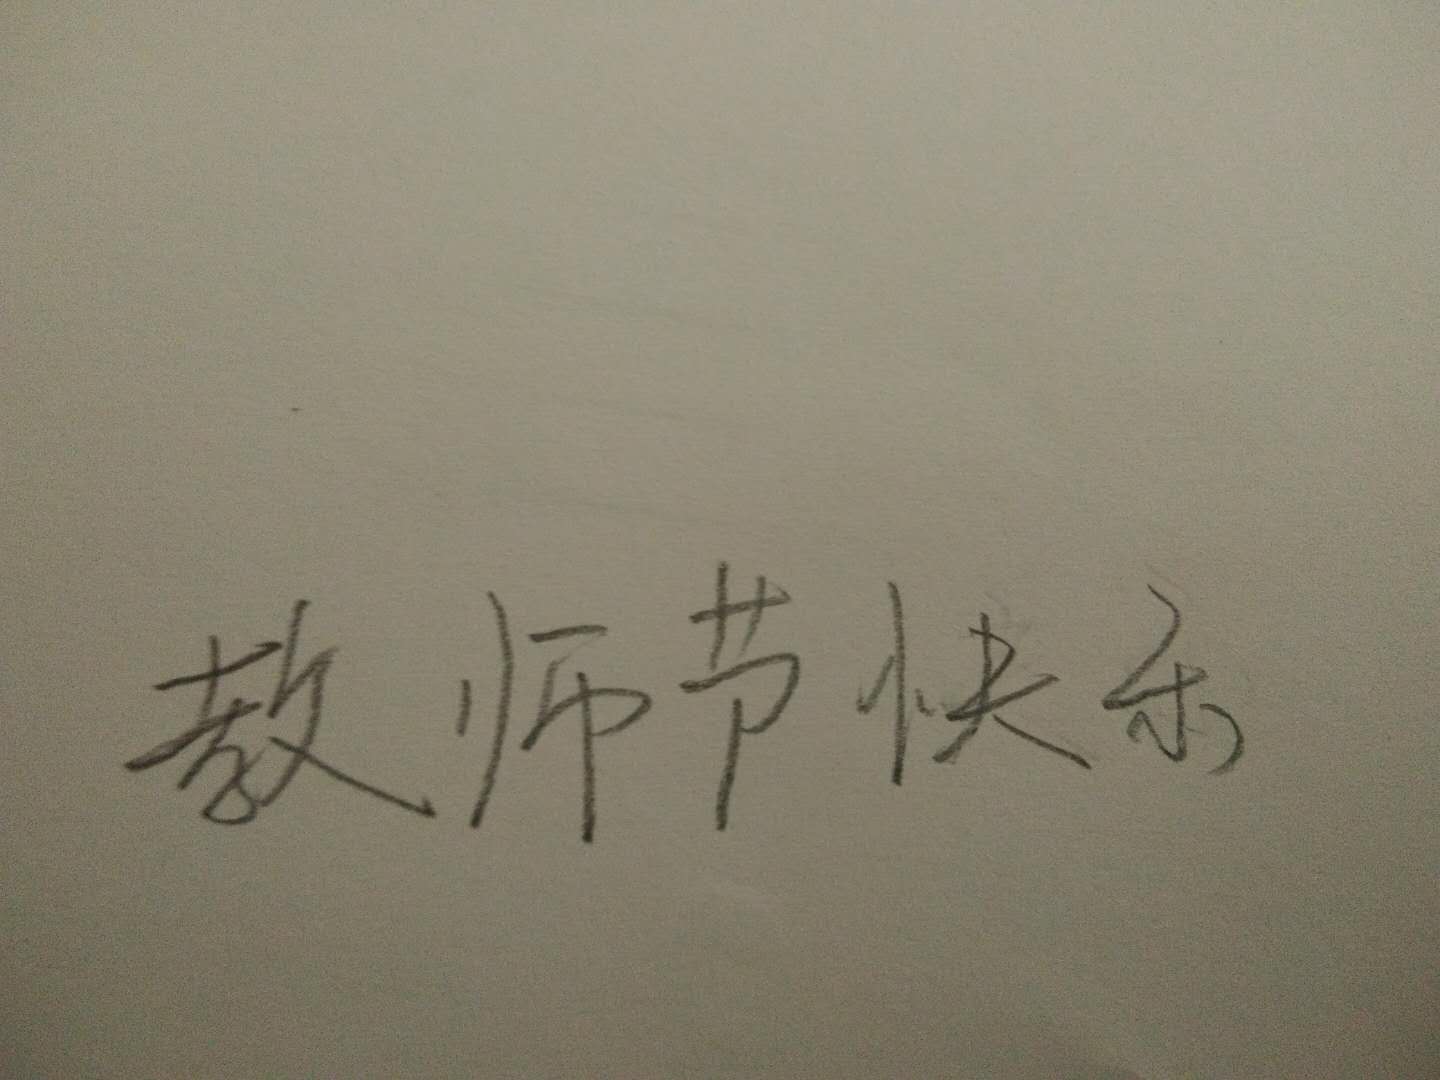 教师节快乐